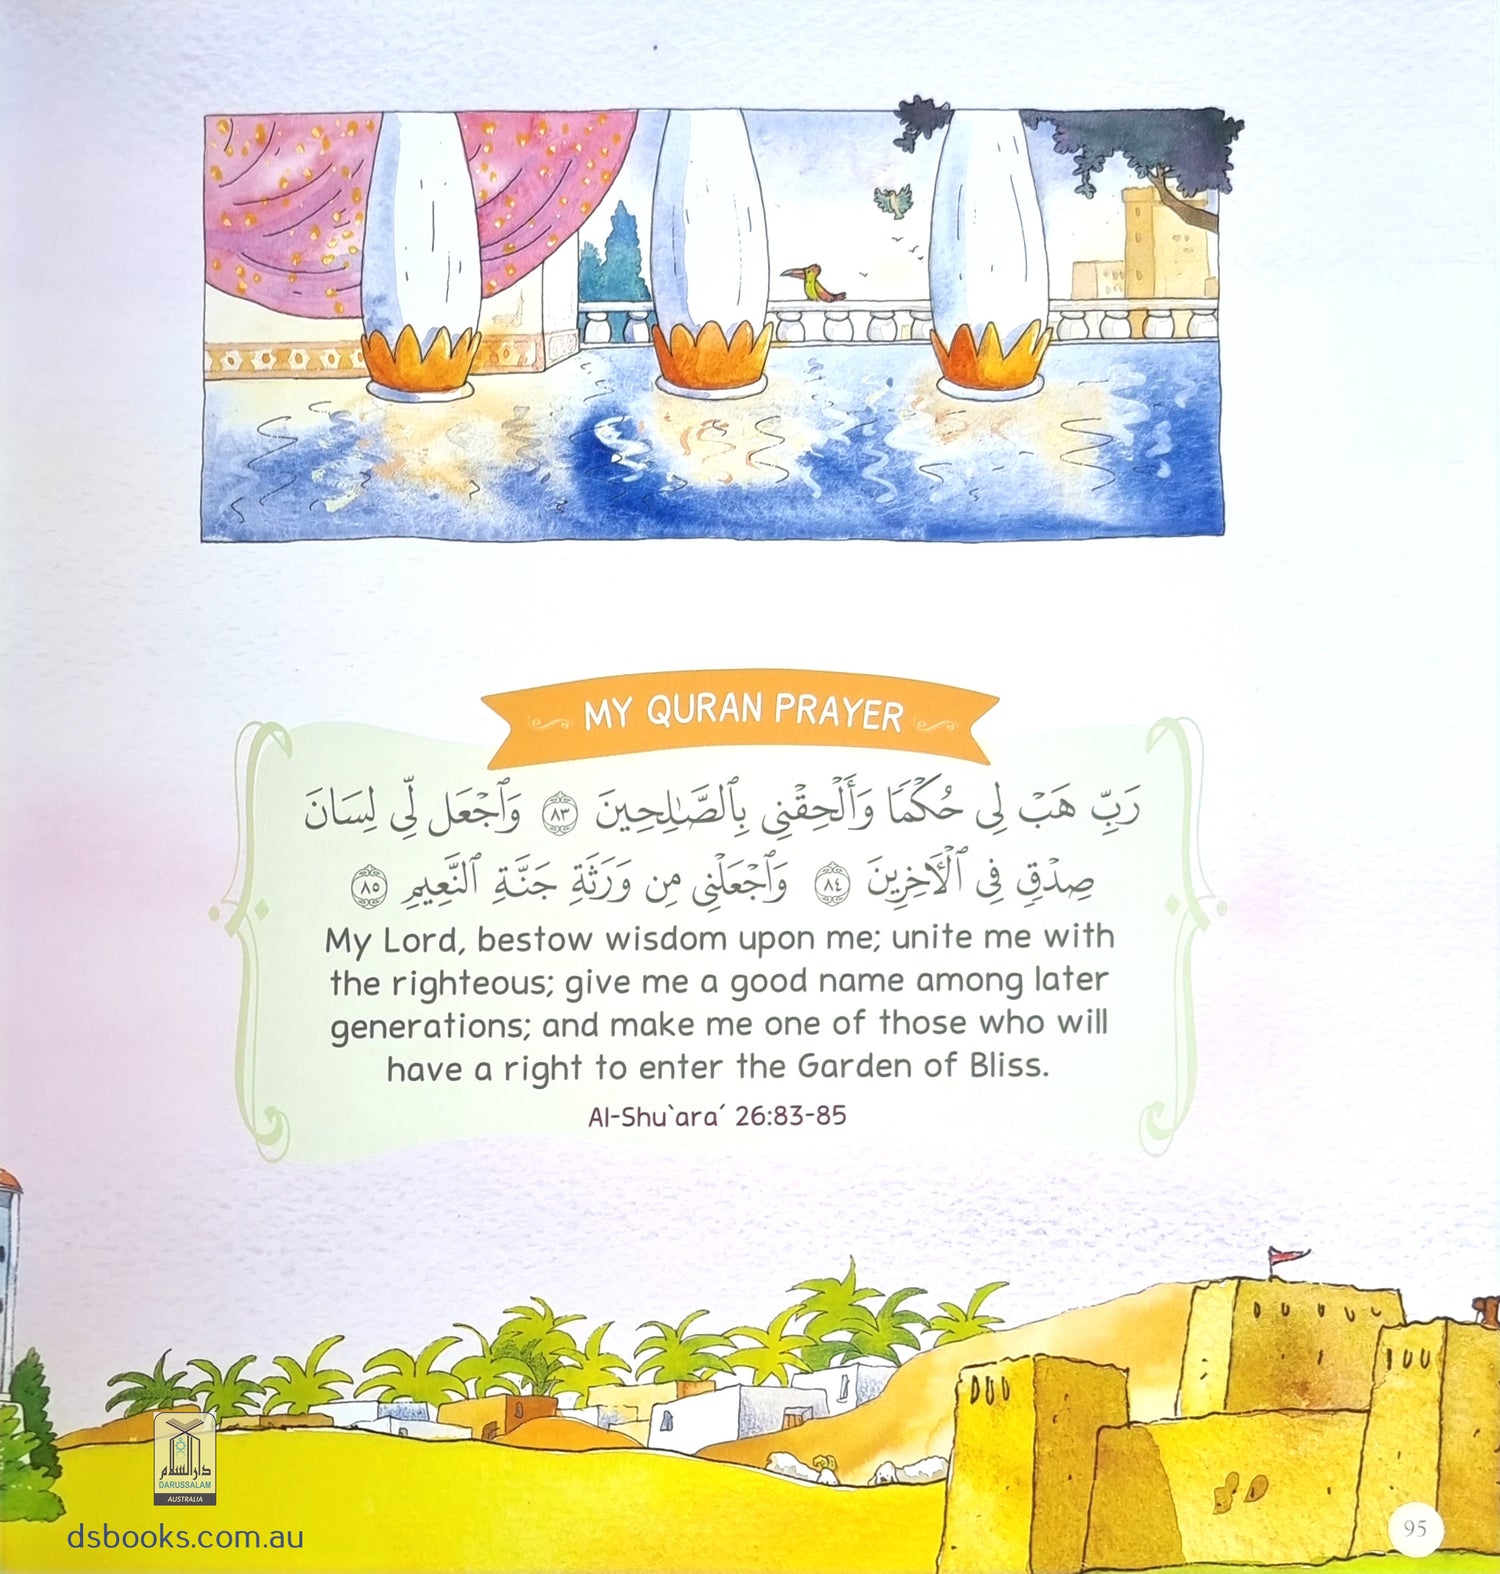 MY QURAN PRAYER
رَبِّ هَبْ لِى حُكْمًا وَأَلْحِقْنِى بِٱلصَّٰلِحِينَ ٨٣ وَٱجْعَل لِّى لِسَانَ
صِدْقٍ فِى ٱلْءَاخِرِينَ ٨٤ وَٱجْعَلْنِى مِن وَرَثَةِ جَنَّةِ ٱلنَّعِيمِ ٨٥
My Lord, bestow wisdom upon me; unite me with
the righteous; give me a good name among later
generations; and make me one of those who will
have a right to enter the Garden of Bliss.
Al-Shu`ara´ 26:83-85
دارالسلام
DARUSSALAM
AUSTRALIA
dsbooks.com.au
95